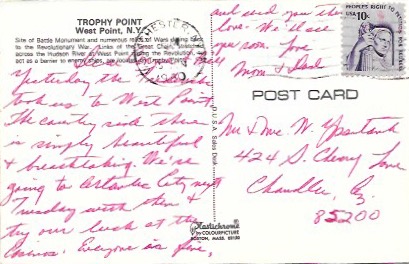 TROPHY POINT
West Point, N.Y.
Site of Battle Monument and numerous relics of Wars dating back
to the Revolutionary War. Links of the Great Chain, stretched
across the Hudson River at West Point during the Revolution,
act as a barrier to enemy ships, are located at Trophy Point.
Yesterday the
took us to West Point.
The country side there
is simply beautiful
& breathtaking. We're
going to Atlantic City next
Tuesday with them &
try our luck at the
Casinos. Everyone is fine,
and send you their
love. We'll see
you soon. Love
Mom & Dad
WESTCHESTER
1980
PEOPLE'S RIGHT TO
USA 10c
POST CARD
Mr & Mrs W.
424 S. Cherry Lane
Chandler, Az
85200
U.S.A.
Plastichrome
BY COLOURPICTURE
BOSTON, MASS. 02130